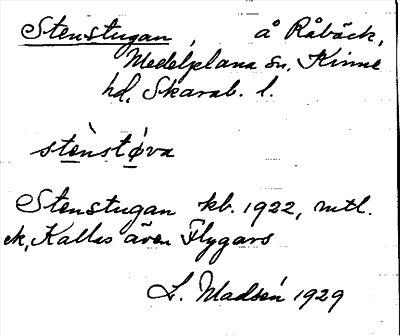 Stenstugan, å Råbäck,
Medelplana sn, Kinne
hd, Skarab. l.
stènstøva
Stenstugan kb. 1922, mtl.
ek, Kallas även Flygars
L. Madsén 1929